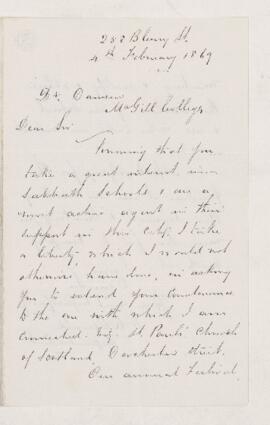 283 Bleury St.
4th February 1869
Dr. Dawson
McGill College
Dear Sir
Knowing that you
take a great interest in
Sabbath Schools & are a
most active agent in their
support in this City, I take
a liberty, which I would not
otherwise have done, in asking
you to extend your Countenance
to the one with which I am
connected. Viz. St. Paul's Church
of Scotland, Dorchester Street.
Our annual Festival